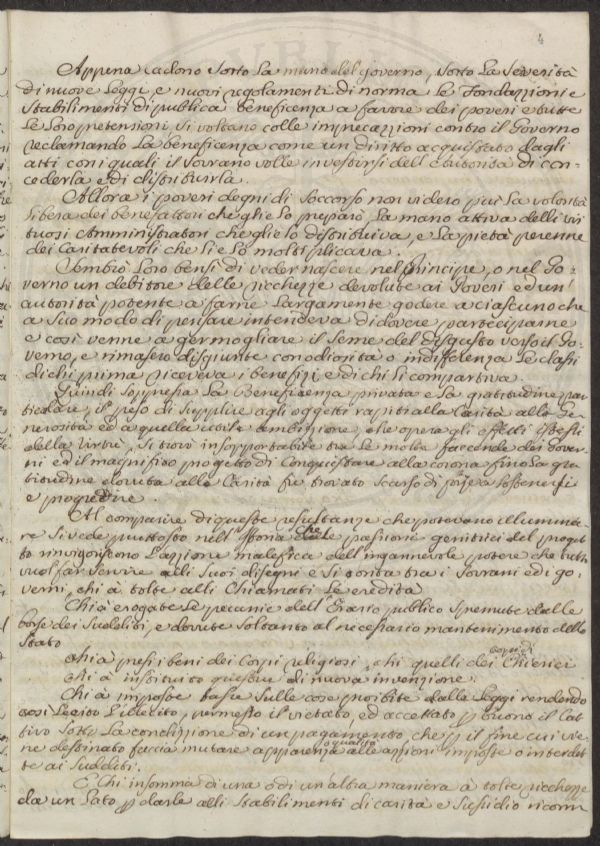 4
Appena cadono sotto la mano del governo, sotto la severità
di nuove Leggi, e nuovi regolamenti di norma le Fondazioni e
stabilimenti di publica beneficenza a favore dei poveri e tutte
le loro pretensioni, si voltano colle imprecazioni contro il Governo
reclamando la beneficenza come un diritto acquistato dagli
atti coi quali il sovrano volle investirsi dell'autorità di con-
cederla e di distribuirla.
Allora i poveri degni di soccorso non videro più la volontà
libera dei benefattori che glielo preparò, la mano attiva delli vir
tuosi Amministratori che glielo distribuiva, e la pietà perenne
dei Caritatevoli che li e lo moltiplicava.
Sembrò loro bensì di veder nascere nel Principe, o nel Go-
verno un debitore delle ricchezze devolute ai Poveri ed un
autorità potente a farne largamente godere a ciascuno che
a suo modo di pensare intendeva di dovere participarne
e così venne a germogliare il seme del disgusto verso il Go-
verno, e rimasero disgiunte con odiosità o indifferenza le classi
di chi prima riceveva i benefizj e di chi li compartiva.
Quindi soppressa la Beneficenza privata e la gratitudine par
ticolare, il peso di supplire agli oggetti rapiti alla Carità alla Ge-
nerosità ed a quella utile ambizione, che opera gli effetti istessi
della virtù, si trovò insopportabile tra le molte faccende dei Gover-
ni ed il magnifico progetto di Conquistare alla corona fino la gra
titudine dovuta alla Carità fu trovato scarso di forze a sostenersi
e progredire.
Al comparire di queste resultanze che potevano illumina-
re si vede piuttosto nell'Istoria che le passioni genitrici del proget
to rinvigoriscono l'azzione malefica dell'ingannevole potere che tutto
vuol far servire alli suoi disegni e si conta tra i sovrani ed i go-
verni, chi à tolte alli Chiamati le eredità
Chi à erogate le pecunie dell'Erario publico spremute dalle
borse dei sudditi, e dovute soltanto al necessario mantenimento dello
stato
chi à presi i beni dei Corpi religiosi, chi quelli dei corpi di Chierici
chi à instituito questue di nuova invenzione.
Chi à imposte tasse sulle cose proibite dalle Leggi rendendo
così Lecito l'illecito, permesso il vietato, ed accettato p buono il cat
tivo sotto la condizione di un pagamento che p il fine cui vie
ne destinato faccia mutare apparenza o qualità alle azzioni imposte o interdet
te ai sudditi.
E Chi insomma di una o di un'altra maniera à tolte ricchezze
da un lato p darle alli stabilimenti di carità e sussidio ricom